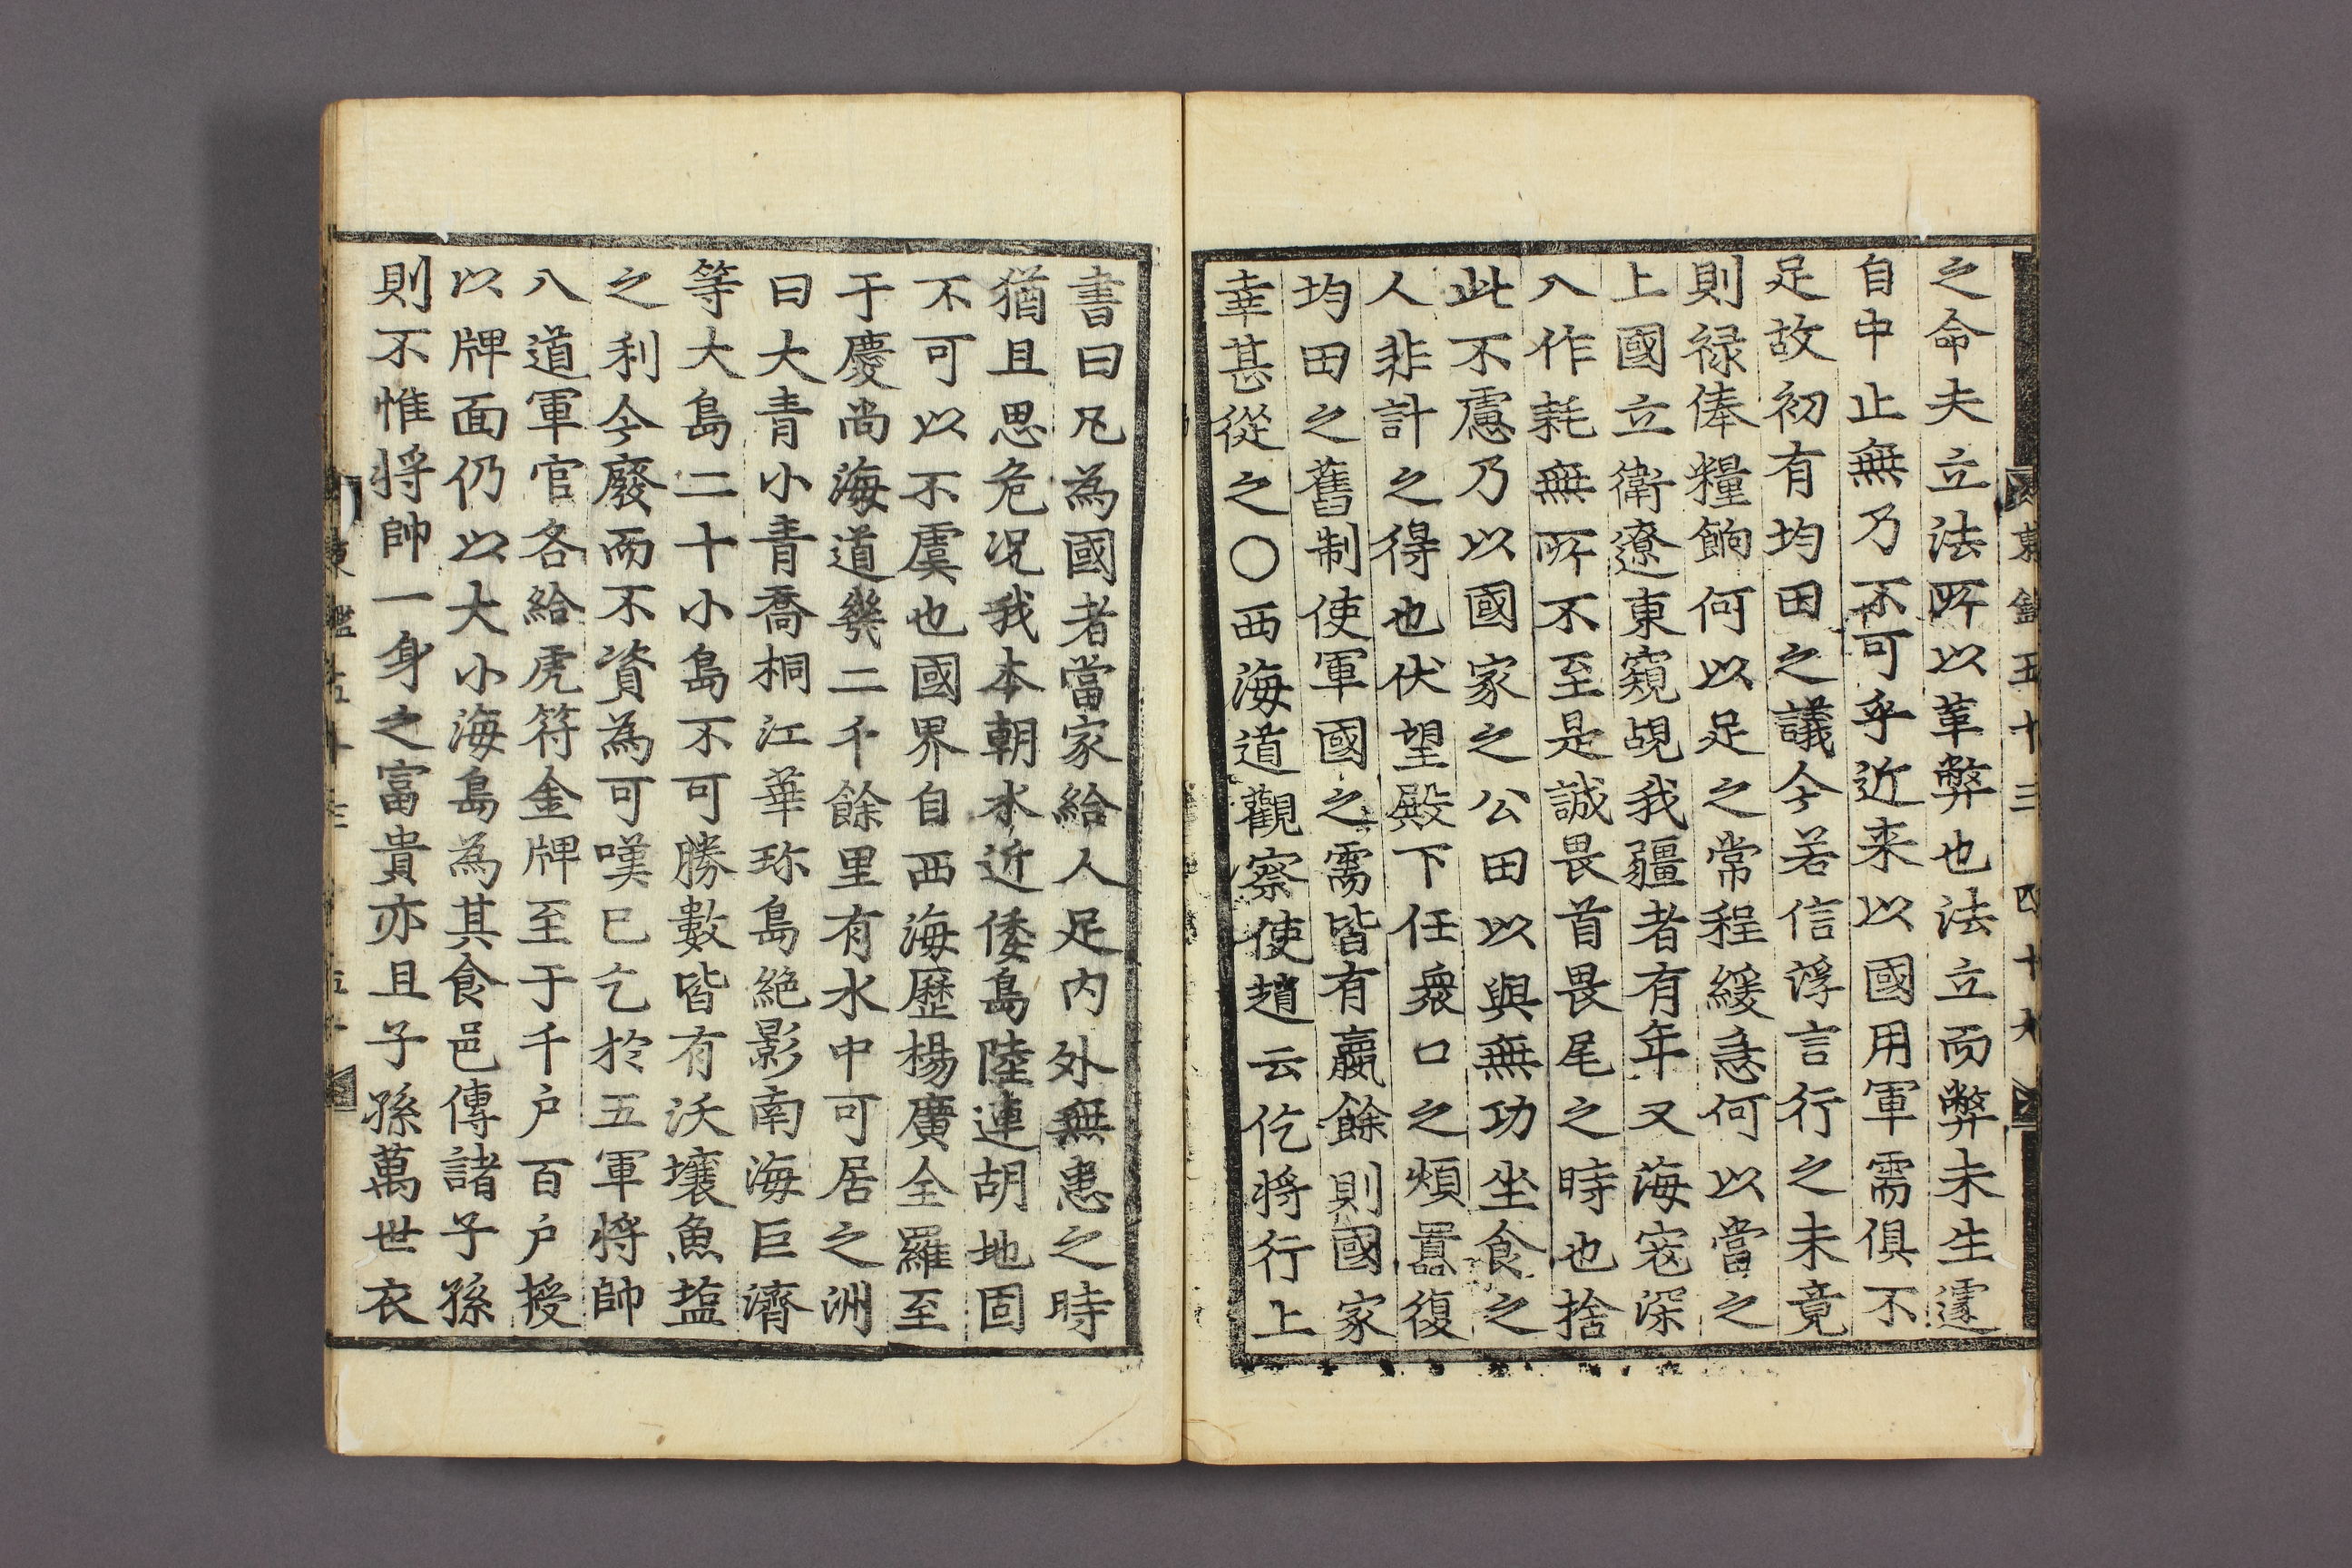 之命夫立法所以革弊也法立而弊未生遽
自中止無乃不可乎近来以國用軍需俱不
足故初有均田之議今若信浮言行之未竟
則祿俸糧餉何以足之常程緩急何以當之
上國立衛遼東窺覘我疆者有年又海寇深
入作耗無所不至是誠畏首畏尾之時也捨
此不慮乃以國家之公田以與無功坐食之
人非計之得也伏望殿下任衆口之煩囂復
均田之舊制使軍國之需皆有贏餘則國家
幸甚從之○西海道觀察使趙云仡將行上
書曰凡為國者當家給人足内外無患之時
猶且思危况我本朝水近倭島陸連胡地固
不可以不虞也國界自西海歷楊廣全羅至
于慶尚海道幾二千餘里有水中可居之洲
曰大青小青喬桐江華珎島絶影南海巨濟
等大島二十小島不可勝數皆有沃壤魚塩
之利今廢而不資為可嘆已乞於五軍將帥
八道軍官各給虎符金牌至于千户百户授
以牌面仍以大小海島為其食邑傳諸子孫
則不惟将帥一身之富貴亦且子孫萬世衣